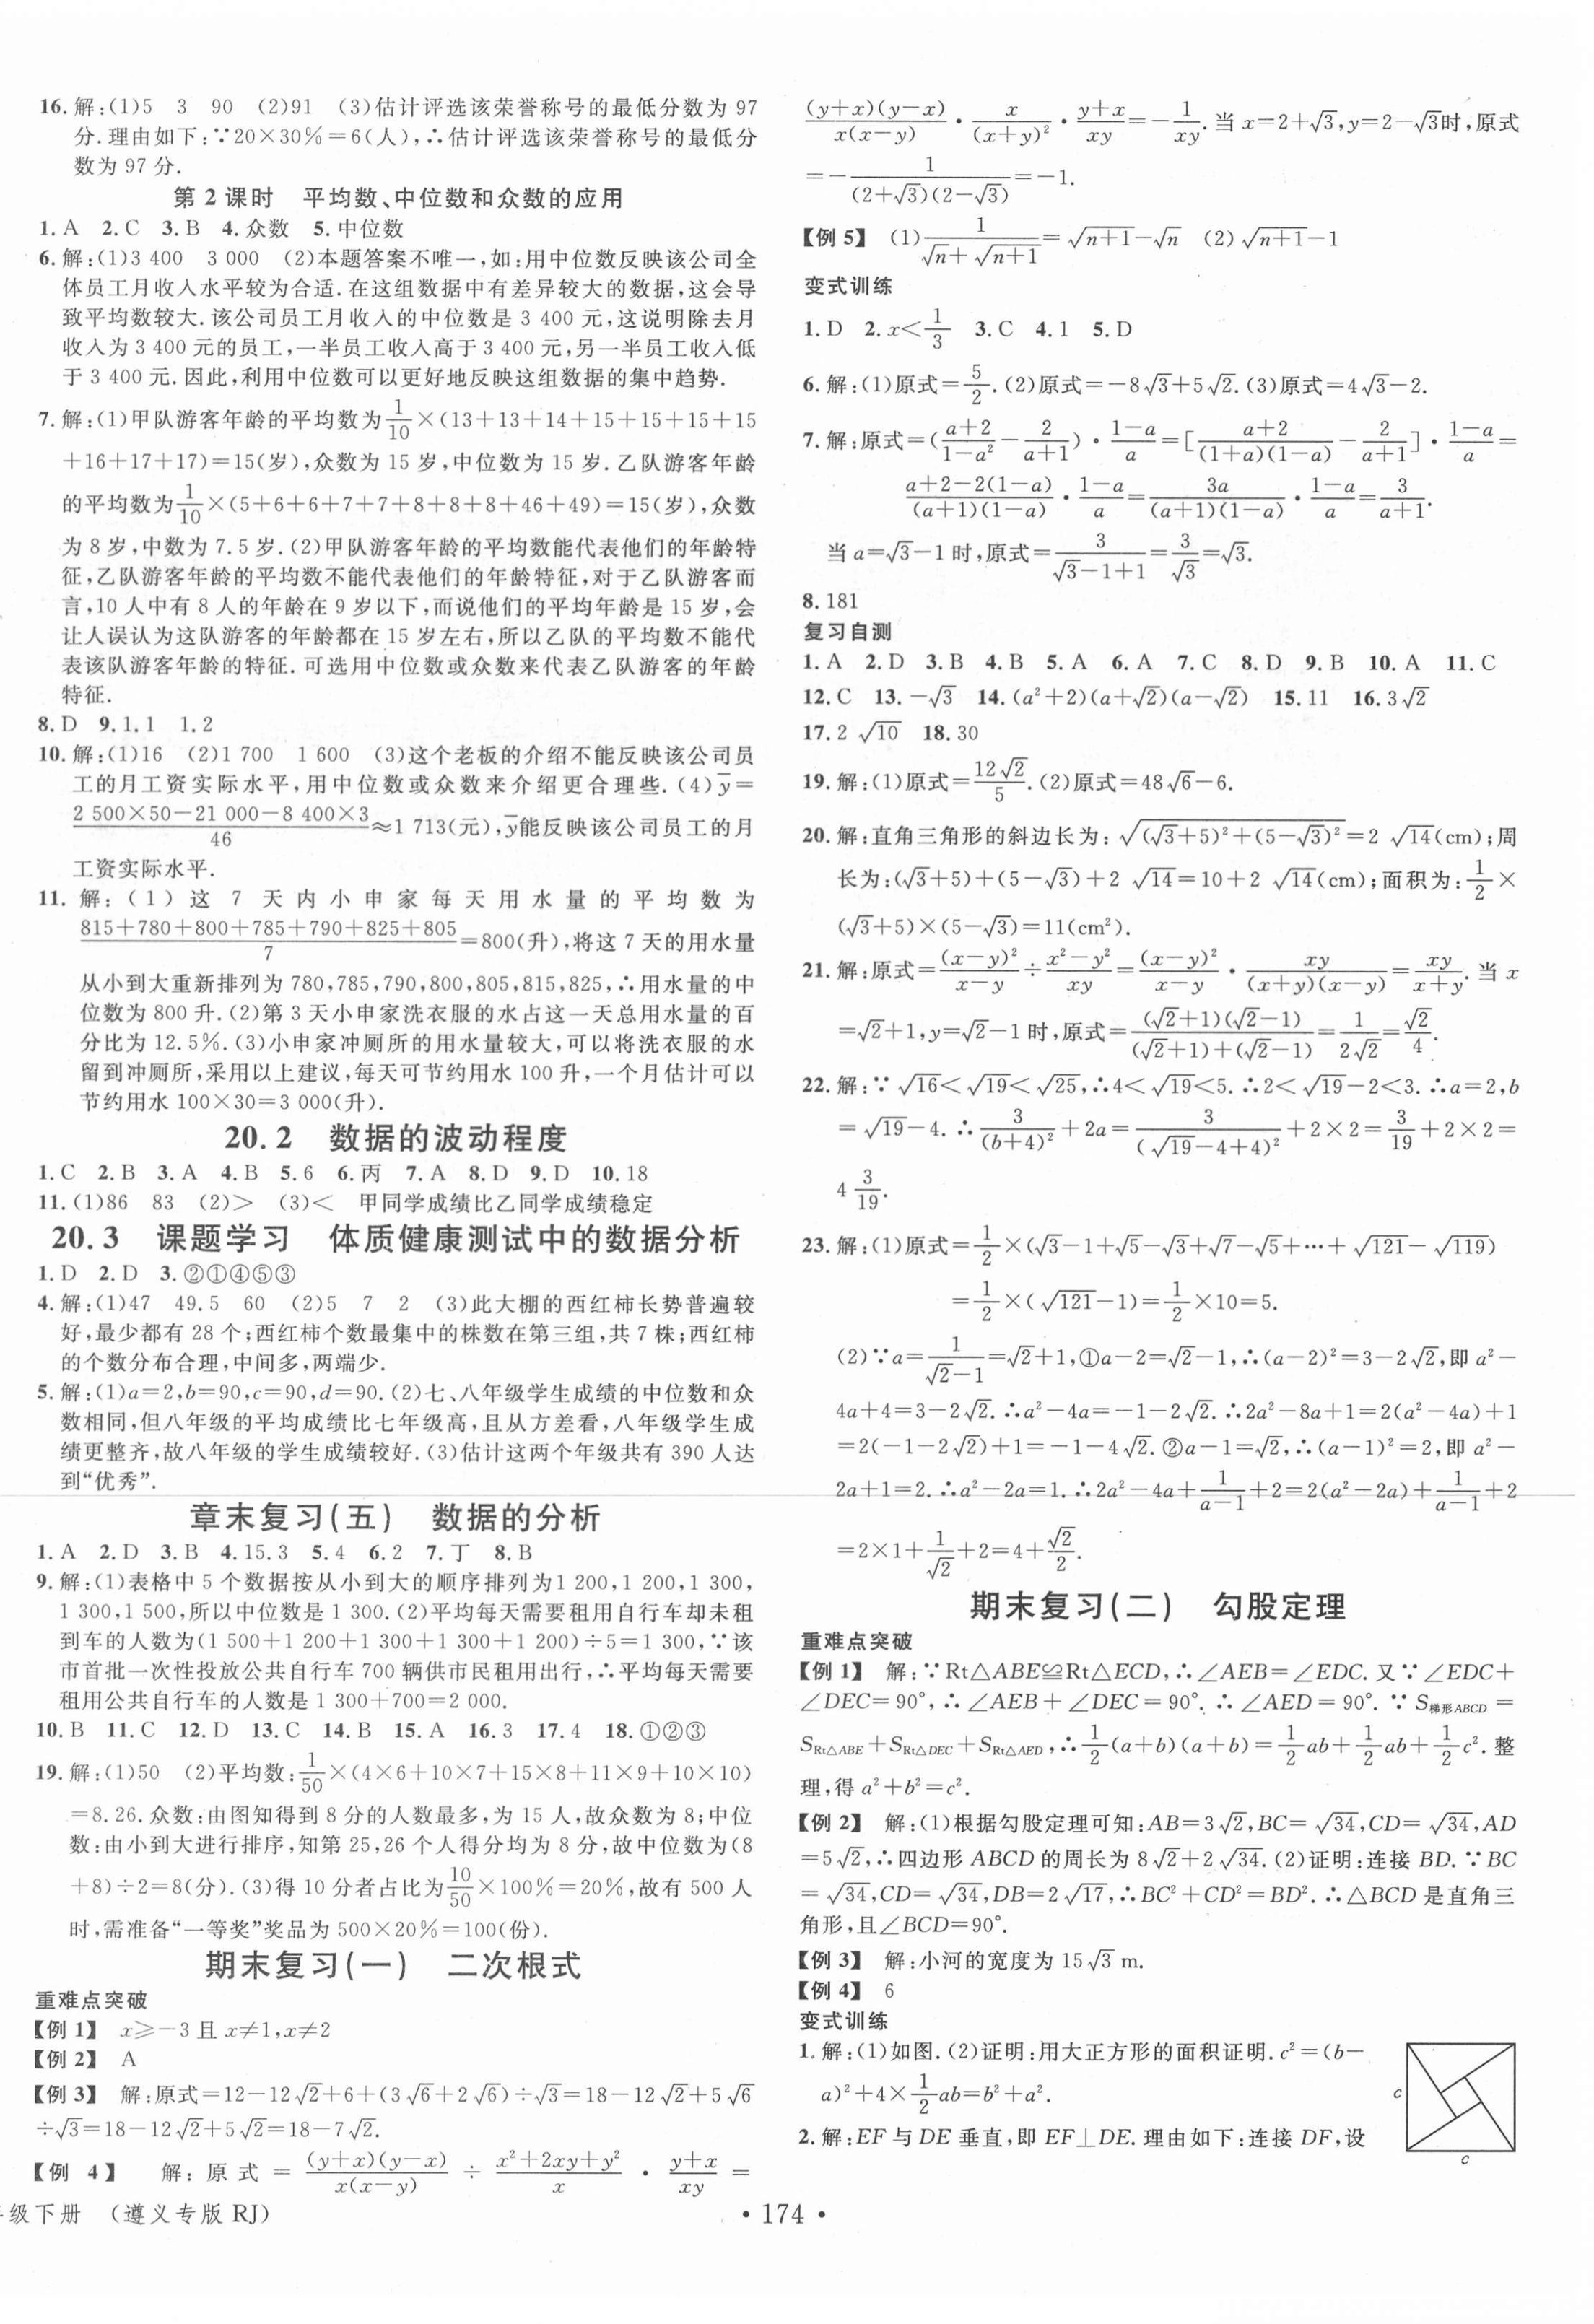 16. 解:(1)5　3　90　(2)91　(3)估计评选该荣誉称号的最低分数为 97
分.理由如下:∵20×30%=6(人),∴估计评选该荣誉称号的最低分
数为 97 分.
第 2 课时　平均数、中位数和众数的应用
1. A　2. C　3. B　4. 众数　5. 中位数
6. 解:(1)3 400　3 000　(2)本题答案不唯一,如:用中位数反映该公司全
体员工月收入水平较为合适.在这组数据中有差异较大的数据,这会导
致平均数较大.该公司员工月收入的中位数是 3 400 元,这说明除去月
收入为 3 400 元的员工,一半员工收入高于 3 400 元,另一半员工收入低
于 3 400 元.因此,利用中位数可以更好地反映这组数据的集中趋势.
7. 解:(1)甲队游客年龄的平均数为 1/10×(13+13+14+15+15+15+15
+16+17+17)=15(岁),众数为 15 岁,中位数为 15 岁.乙队游客年龄
的平均数为 1/10×(5+6+6+7+7+8+8+8+46+49)=15(岁),众数
为 8 岁,中数为 7.5 岁.(2)甲队游客年龄的平均数能代表他们的年龄特
征,乙队游客年龄的平均数不能代表他们的年龄特征,对于乙队游客而
言,10 人中有 8 人的年龄在 9 岁以下,而说他们的平均年龄是 15 岁,会
让人误认为这队游客的年龄都在 15 岁左右,所以乙队的平均数不能代
表该队游客年龄的特征.可选用中位数或众数来代表乙队游客的年龄
特征.
8. D　9. 1.1　1.2
10. 解:(1)16　(2)1 700　1 600　(3)这个老板的介绍不能反映该公司员
工的月工资实际水平,用中位数或众数来介绍更合理些.(4)y̅=
(2 500×50−21 000−8 400×3)/46≈1 713(元),y̅能反映该公司员工的月
工资实际水平.
11. 解:(1)这 7 天内小申家每天用水量的平均数为
(815+780+800+785+790+825+805)/7=800(升),将这 7 天的用水量
从小到大重新排列为 780,785,790,800,805,815,825,∴用水量的中
位数为 800 升.(2)第 3 天小申家洗衣服的水占这一天总用水量的百
分比为 12.5%.(3)小申家冲厕所的用水量较大,可以将洗衣服的水
留到冲厕所,采用以上建议,每天可节约用水 100 升,一个月估计可以
节约用水 100×30=3 000(升).
20. 2　数据的波动程度
1. C　2. B　3. A　4. B　5. 6　6. 丙　7. A　8. D　9. D　10. 18
11. (1)86　83　(2)>　(3)<　甲同学成绩比乙同学成绩稳定
20. 3　课题学习　体质健康测试中的数据分析
1. D　2. D　3. ②①④⑤③
4. 解:(1)47　49.5　60　(2)5　7　2　(3)此大棚的西红柿长势普遍较
好,最少都有 28 个;西红柿个数最集中的株数在第三组,共 7 株;西红柿
的个数分布合理,中间多,两端少.
5. 解:(1)a=2,b=90,c=90,d=90.(2)七、八年级学生成绩的中位数和众
数相同,但八年级的平均成绩比七年级高,且从方差看,八年级学生成
绩更整齐,故八年级的学生成绩较好.(3)估计这两个年级共有 390 人达
到“优秀”.
章末复习(五)　数据的分析
1. A　2. D　3. B　4. 15.3　5. 4　6. 2　7. 丁　8. B
9. 解:(1)表格中 5 个数据按从小到大的顺序排列为1 200,1 200,1 300,
1 300,1 500,所以中位数是 1 300.(2)平均每天需要租用自行车却未租
到车的人数为(1 500+1 200+1 300+1 300+1 200)÷5=1 300,∵该
市首批一次性投放公共自行车 700 辆供市民租用出行,∴平均每天需要
租用公共自行车的人数是 1 300+700=2 000.
10. B　11. C　12. D　13. C　14. B　15. A　16. 3　17. 4　18. ①②③
19. 解:(1)50　(2)平均数:1/50×(4×6+10×7+15×8+11×9+10×10)
=8.26.众数:由图知得到 8 分的人数最多,为 15 人,故众数为 8;中位
数:由小到大进行排序,知第 25,26 个人得分均为 8 分,故中位数为(8
+8)÷2=8(分).(3)得 10 分者占比为 10/50×100%=20%,故有 500 人
时,需准备“一等奖”奖品为 500×20%=100(份).
期末复习(一)　二次根式
重难点突破
【例 1】　x≥−3 且 x≠1,x≠2
【例 2】　A
【例 3】　解:原式=12−12√2+6+(3√6+2√6)÷√3=18−12√2+5√6
÷√3=18−12√2+5√2=18−7√2.
【例 4】　解:原式=(y+x)(y−x)/x(x−y) ÷ (x²+2xy+y²)/x · (y+x)/xy =
年级下册　(遵义专版 RJ)
(y+x)(y−x)/x(x−y) · x/(x+y)² · (y+x)/xy=−1/xy.当 x=2+√3,y=2−√3时,原式
=−1/(2+√3)(2−√3)=−1.
【例 5】　(1)1/(√n+√(n+1))=√(n+1)−√n　(2)√(n+1)−1
变式训练
1. D　2. x<1/3　3. C　4. 1　5. D
6. 解:(1)原式=5/2.(2)原式=−8√3+5√2.(3)原式=4√3−2.
7. 解:原式=((a+2)/(1−a²)−2/(a+1))·(1−a)/a=[(a+2)/(1+a)(1−a)−2/(a+1)]·(1−a)/a=
(a+2−2(1−a))/(a+1)(1−a)·(1−a)/a=3a/(a+1)(1−a)·(1−a)/a=3/(a+1).
当 a=√3−1 时,原式=3/(√3−1+1)=3/√3=√3.
8. 181
复习自测
1. A　2. D　3. B　4. B　5. A　6. A　7. C　8. D　9. B　10. A　11. C
12. C　13. −√3　14. (a²+2)(a+√2)(a−√2)　15. 11　16. 3√2
17. 2√10　18. 30
19. 解:(1)原式=12√2/5.(2)原式=48√6−6.
20. 解:直角三角形的斜边长为:√((√3+5)²+(5−√3)²)=2√14(cm);周
长为:(√3+5)+(5−√3)+2√14=10+2√14(cm);面积为:1/2×
(√3+5)×(5−√3)=11(cm²).
21. 解:原式=(x−y)²/(x−y)÷(x²−y²)/xy=(x−y)²/(x−y)·xy/(x+y)(x−y)=xy/(x+y).当 x
=√2+1,y=√2−1 时,原式=(√2+1)(√2−1)/((√2+1)+(√2−1))=1/2√2=√2/4.
22. 解:∵√16<√19<√25,∴4<√19<5.∴2<√19−2<3.∴a=2,b
=√19−4.∴3/(b+4)²+2a=3/(√19−4+4)²+2×2=3/19+2×2=
4 3/19.
23. 解:(1)原式=1/2×(√3−1+√5−√3+√7−√5+…+√121−√119)
=1/2×(√121−1)=1/2×10=5.
(2)∵a=1/(√2−1)=√2+1,①a−2=√2−1,∴(a−2)²=3−2√2,即 a²−
4a+4=3−2√2.∴a²−4a=−1−2√2.∴2a²−8a+1=2(a²−4a)+1
=2(−1−2√2)+1=−1−4√2.②a−1=√2,∴(a−1)²=2,即 a²−
2a+1=2.∴a²−2a=1.∴2a²−4a+1/(a−1)+2=2(a²−2a)+1/(a−1)+2
=2×1+1/√2+2=4+√2/2.
期末复习(二)　勾股定理
重难点突破
【例 1】　解:∵Rt△ABE≌Rt△ECD,∴∠AEB=∠EDC.又∵∠EDC+
∠DEC=90°,∴∠AEB+∠DEC=90°.∴∠AED=90°.∵S梯形ABCD=
SRt△ABE+SRt△DEC+SRt△AED,∴1/2(a+b)(a+b)=1/2ab+1/2ab+1/2c².整
理,得 a²+b²=c².
【例 2】　解:(1)根据勾股定理可知:AB=3√2,BC=√34,CD=√34,AD
=5√2,∴四边形 ABCD 的周长为 8√2+2√34.(2)证明:连接 BD.∵BC
=√34,CD=√34,DB=2√17,∴BC²+CD²=BD².∴△BCD 是直角三
角形,且∠BCD=90°.
【例 3】　解:小河的宽度为 15√3 m.
【例 4】　6
变式训练
1. 解:(1)如图.(2)证明:用大正方形的面积证明.c²=(b−
a)²+4×1/2ab=b²+a².
c
c
2. 解:EF 与 DE 垂直,即 EF⊥DE.理由如下:连接 DF,设
· 174 ·